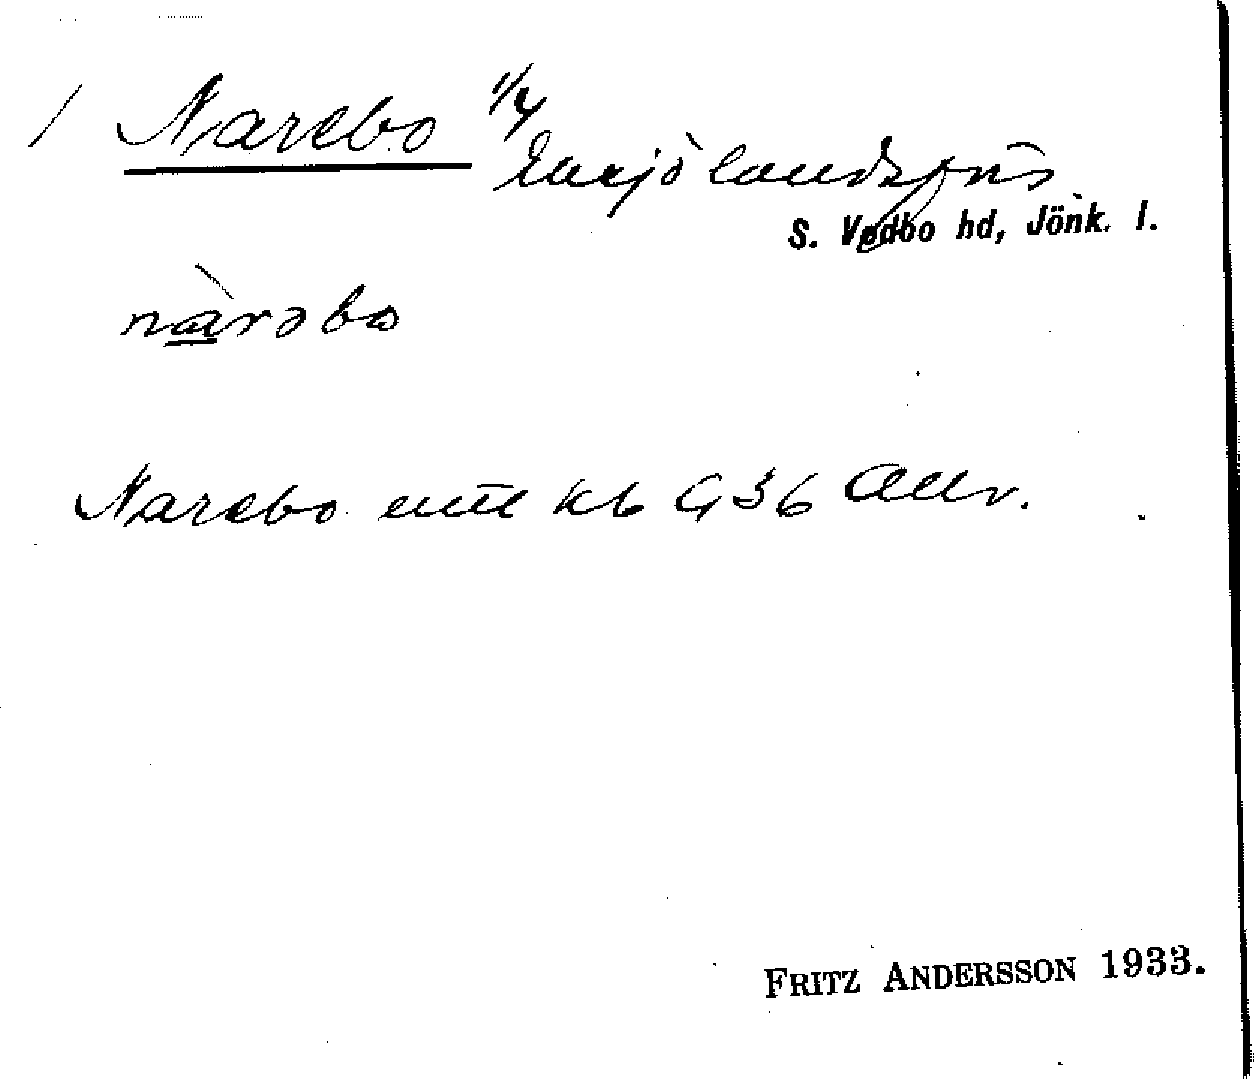 / Narebo 1/4
Eksjö landsförs
S. Vedbo hd, Jönk. l.
nàrəbo
Narebo enl kb G 36 Allv.
FRITZ ANDERSSON 1933.